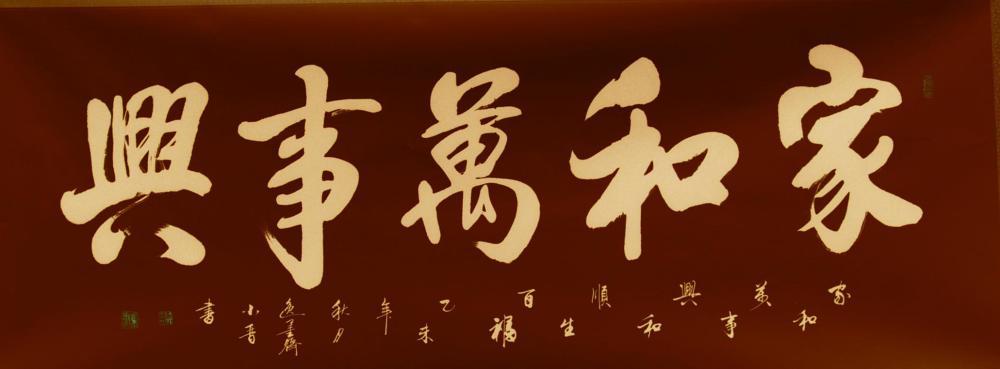 家和萬事興
家和萬事興和順生百福乙未年秋月墨齋小書